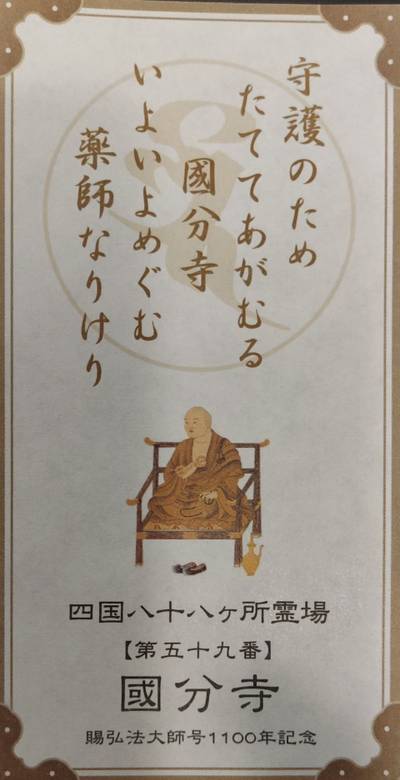 守護のため
たててあがむる
國分寺
いよいよめぐむ
薬師なりけり
四国八十八ヶ所霊場
【第五十九番】
國分寺
賜弘法大師号1100年記念